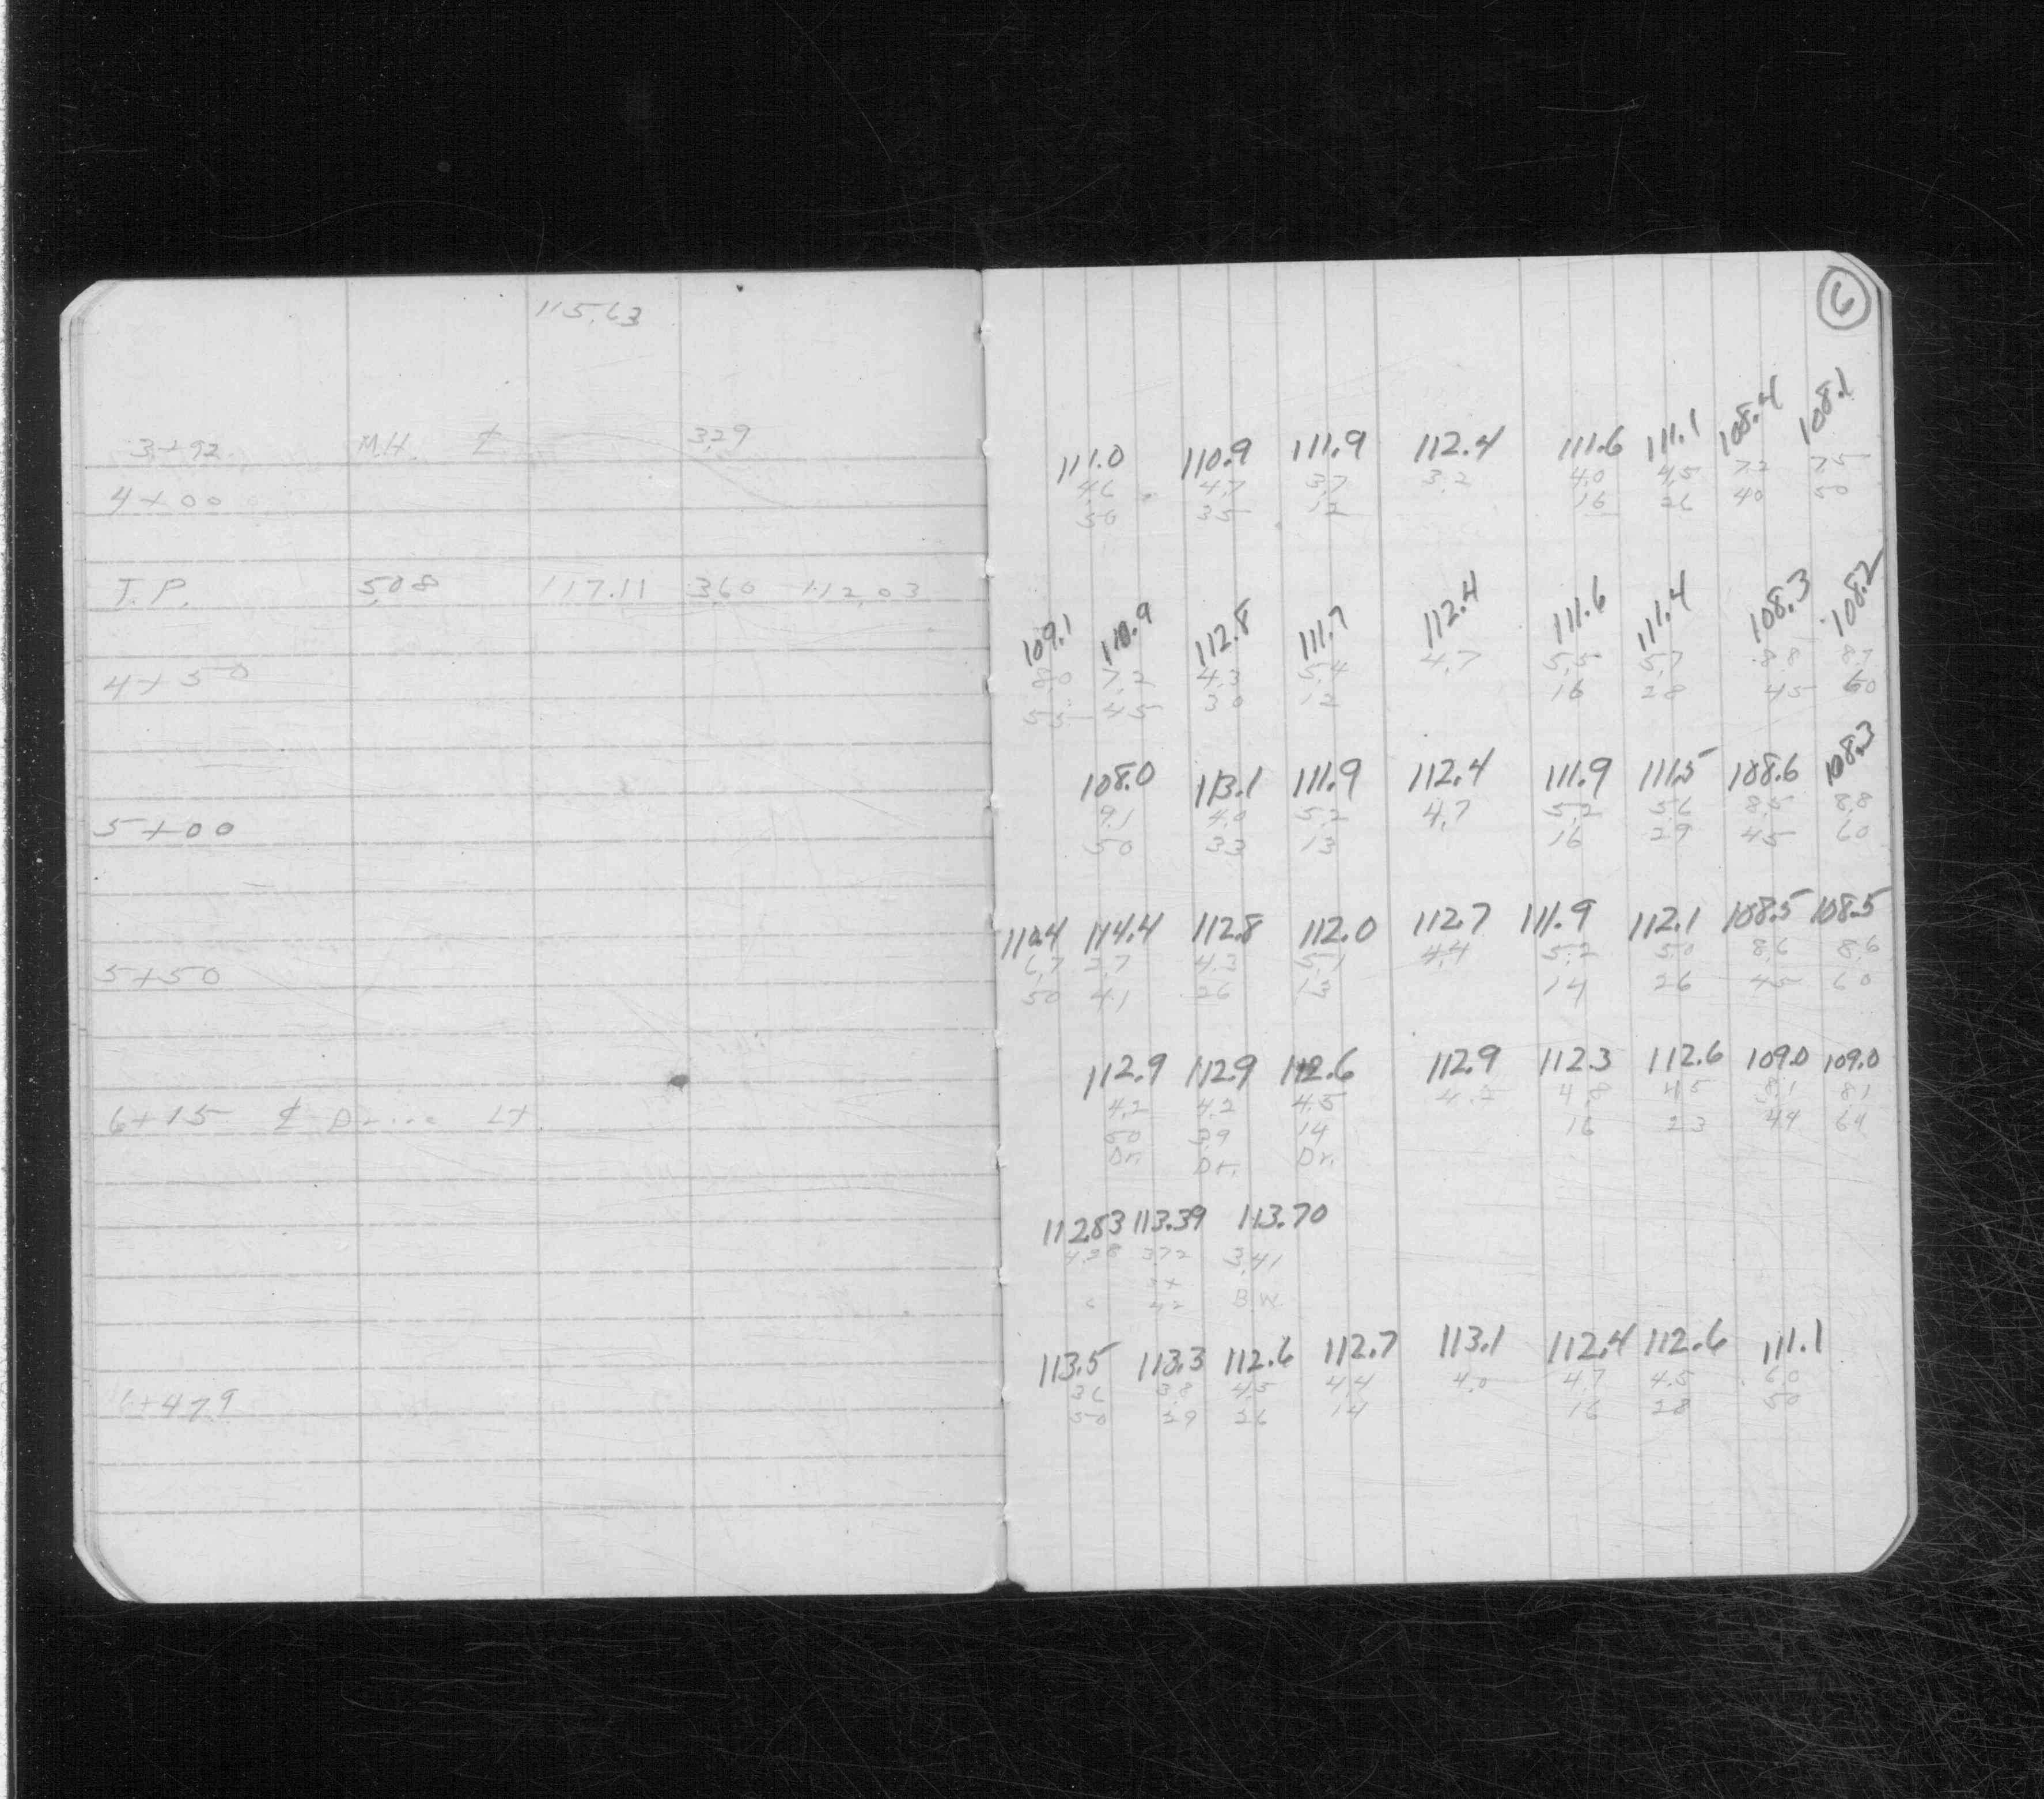 115.63
3+92 M.H. ℄ 3.29
4+00
T.P. 5.08 117.11 3.60 112.03
4+50
5+00
5+50
6+15 ℄ Drive Lt.
6+47.9
6
111.0 110.9 111.9 112.4 111.6 111.1 108.4 108.1
4.6 4.7 3.7 3.2 4.0 4.5 7.2 7.5
50 35 12 16 26 40 50
109.1 110.9 112.8 111.7 112.4 111.6 111.4 108.3 108.2
8.0 7.2 4.3 5.4 4.7 5.5 5.7 8.8 8.7
55 45 30 12 16 28 45 60
108.0 113.1 111.9 112.4 111.9 111.5 108.6 108.3
9.1 4.0 5.2 4.7 5.2 5.6 8.5 8.8
50 33 13 16 29 45 60
110.4 114.4 112.8 112.0 112.7 111.9 112.1 108.5 108.5
6.7 2.7 4.3 5.1 4.4 5.2 5.0 8.6 8.6
50 41 26 13 14 26 45 60
112.9 112.9 112.6 112.9 112.3 112.6 109.0 109.0
4.2 4.2 4.5 4.2 4.8 4.5 8.1 8.1
50 39 14 16 23 44 64
Dr. Dr. Dr.
112.83 113.39 113.70
4.28 3.72 3.41
42 B.W
113.5 113.3 112.6 112.7 113.1 112.4 112.6 111.1
3.6 3.8 4.5 4.4 4.0 4.7 4.5 6.0
50 29 26 14 16 28 50